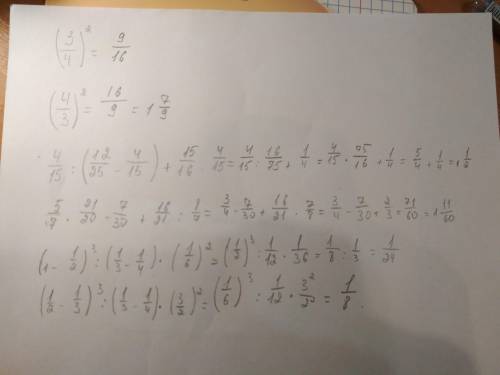 (3/4)² = 9/16
(4/3)² = 16/9 = 1 7/9
4/15 : (12/25 - 4/15) + 15/16 · 4/15 = 4/15 : 16/75 + 1/4 = 4/15 · 75/16 + 1/4 = 5/4 + 1/4 = 1 1/2
5/7 · 21/20 - 7/30 + 16/21 : 8/7 = 3/4 - 7/30 + 16/21 · 7/8 = 3/4 - 7/30 + 2/3 = 71/60 = 1 11/60
(1 - 1/2)³ : (1/3 - 1/4) · (1/6)² = (1/2)³ : 1/12 · 1/36 = 1/8 : 1/3 = 1/24
(1/2 - 1/3)³ : (1/3 - 1/4) · = (1/6)³ : 1/12 · = 1/8.